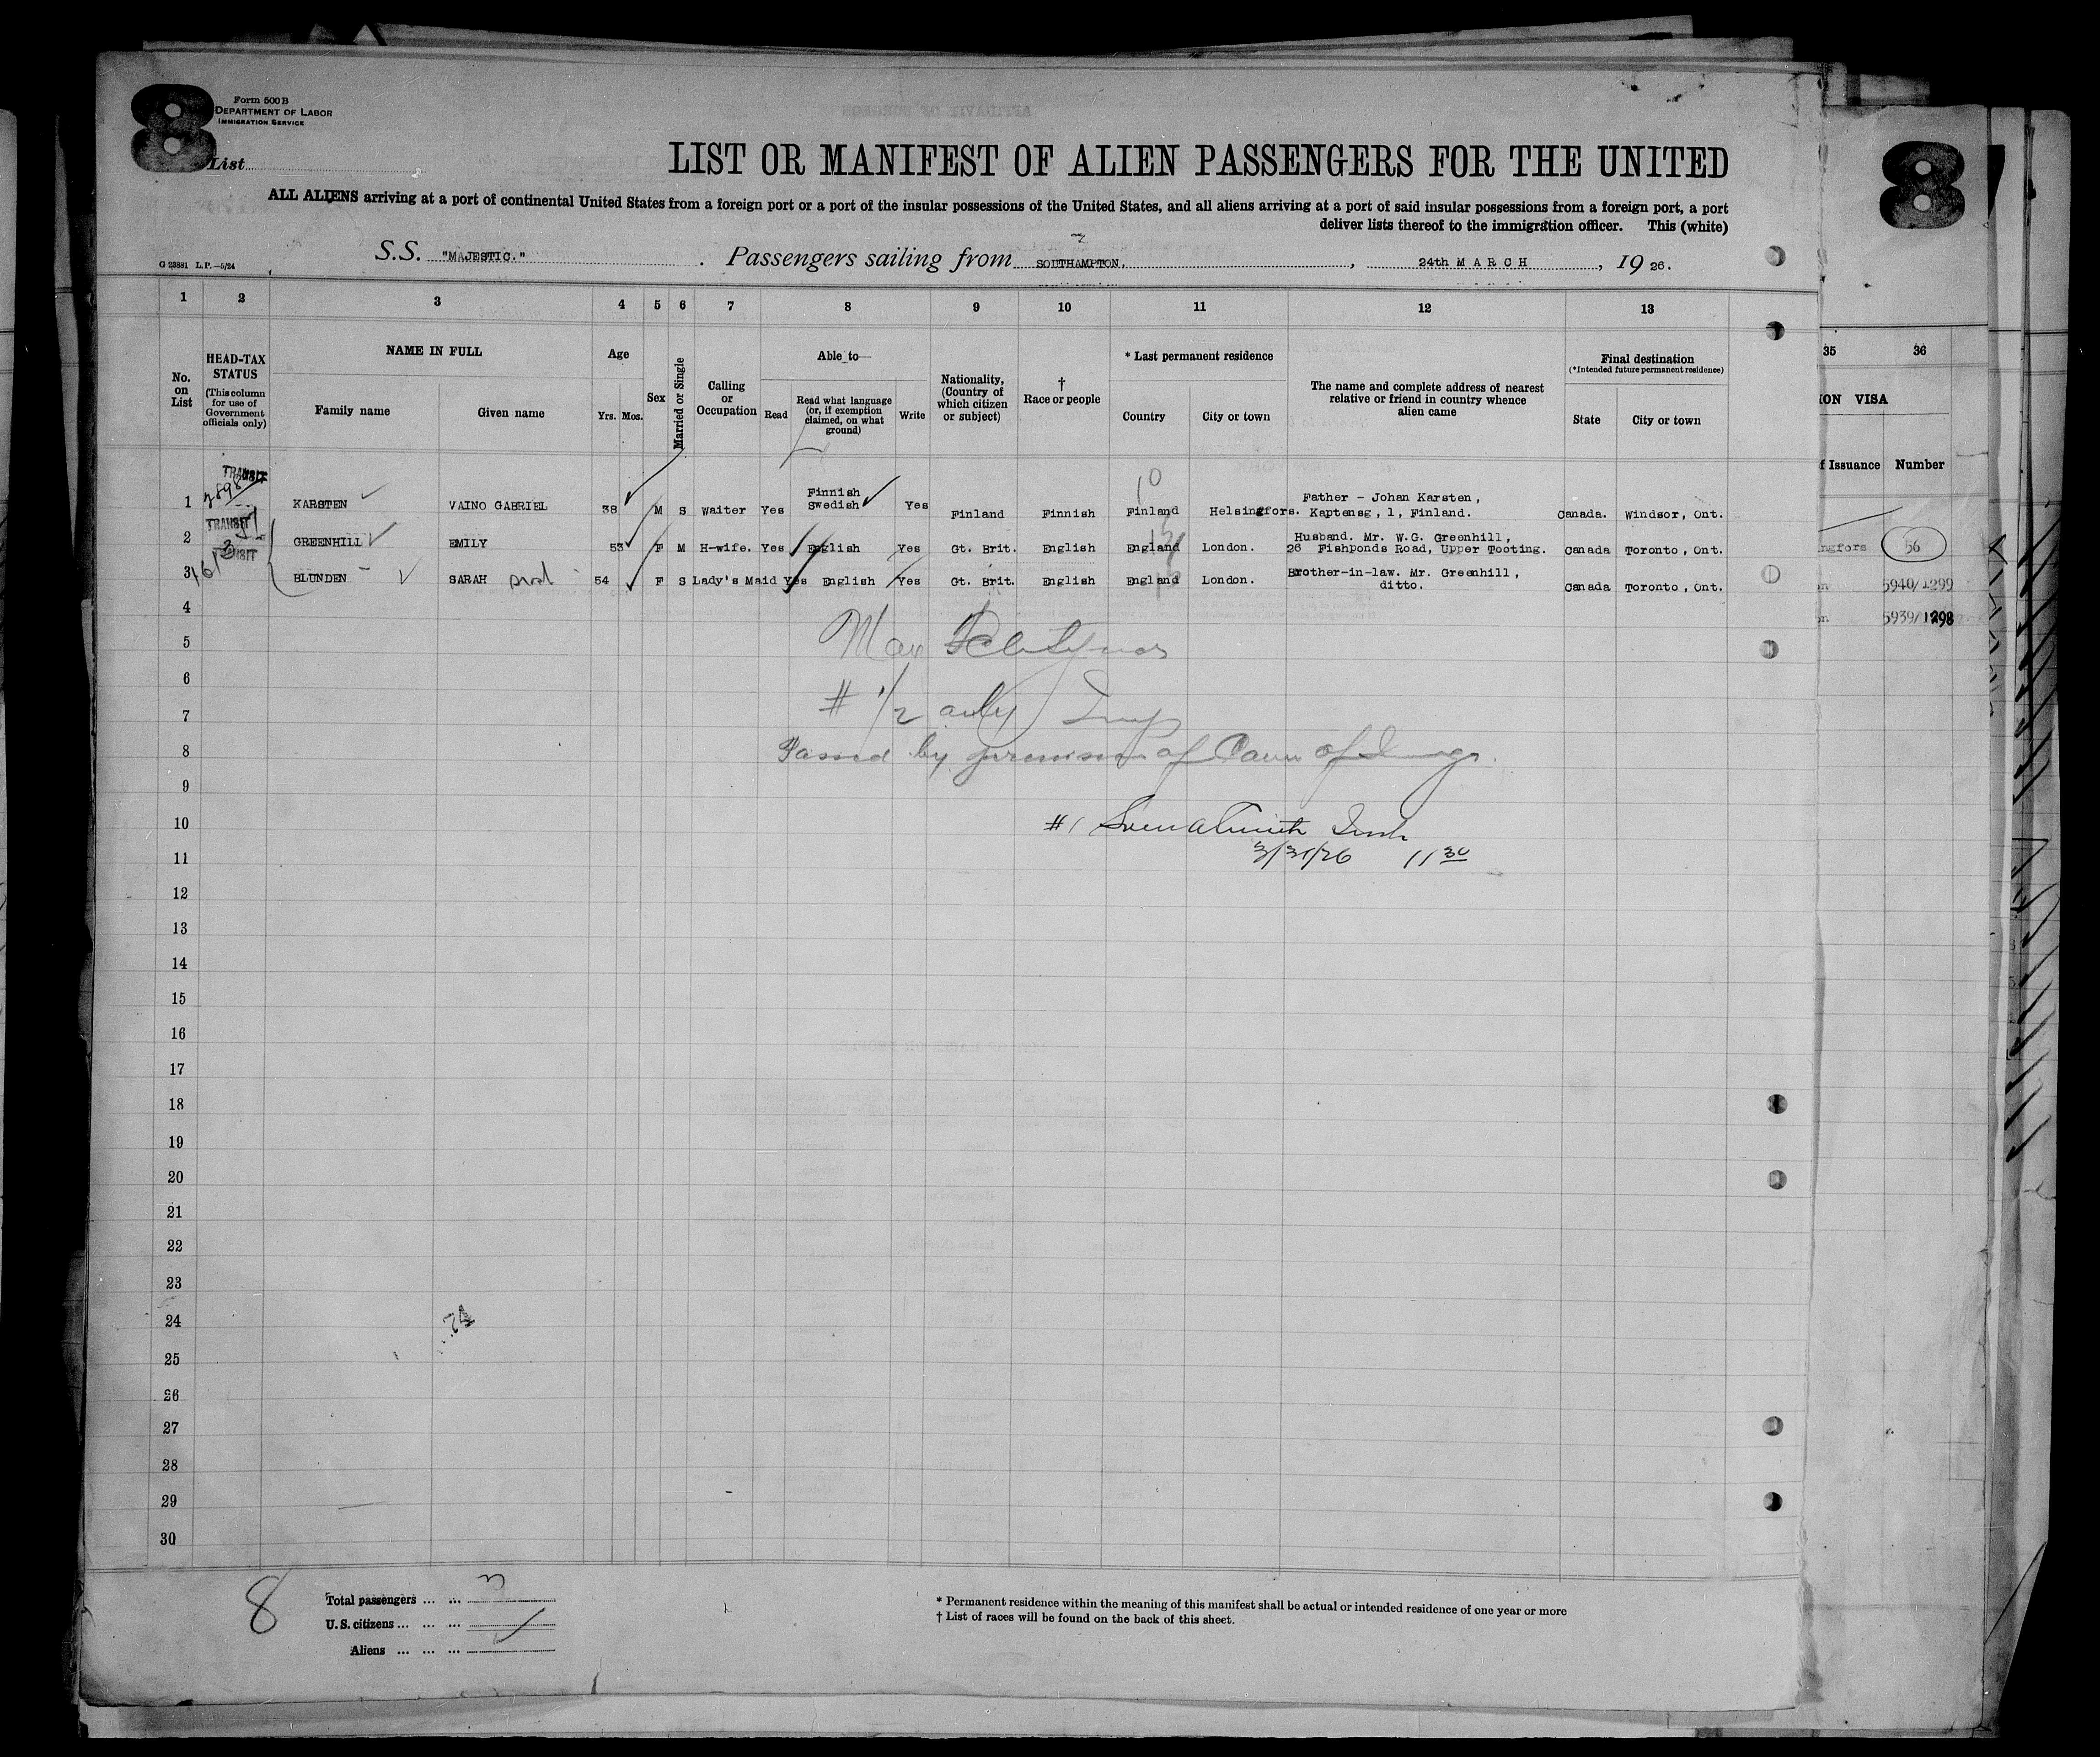 8
Form 500 B
DEPARTMENT OF LABOR
IMMIGRATION SERVICE
List
8
LIST OR MANIFEST OF ALIEN PASSENGERS FOR THE UNITED
ALL ALIENS arriving at a port of continental United States from a foreign port or a port of the insular possessions of the United States, and all aliens arriving at a port of said insular possessions from a foreign port, a port
deliver lists thereof to the immigration officer. This (white)
G 23881 L.P.—5/24
S.S. "MAJESTIC." Passengers sailing from SOUTHAMPTON, 24th MARCH, 1926.
1 2 3 4 5 6 7 8 9 10 11 12 13 35 36
No. on List
HEAD-TAX STATUS
(This column for use of Government officials only)
NAME IN FULL
Family name
Given name
Age
Yrs. Mos.
Sex
Married or Single
Calling or Occupation
Able to
Read
Read what language (or, if exemption claimed, on what ground)
Write
Nationality, (Country of which citizen or subject)
† Race or people
* Last permanent residence
Country
City or town
The name and complete address of nearest relative or friend in country whence alien came
Final destination
(*Intended future permanent residence)
State
City or town
ION VISA
f Issuance
Number
1 TRANSIT KARSTEN VAINO GABRIEL 38 M S Waiter Yes Finnish Swedish Yes Finland Finnish Finland Helsingfors. Father - Johan Karsten, Kaptensg, 1, Finland. Canada. Windsor, Ont.
2 TRANSIT GREENHILL EMILY 53 F M H-wife. Yes English Yes Gt. Brit. English England London. Husband. Mr. W.G. Greenhill, 26 Fishponds Road, Upper Tooting. Canada Toronto, Ont.
3 TRANSIT BLUNDEN SARAH 54 F S Lady's Maid Yes English Yes Gt. Brit. English England London. Brother-in-law. Mr. Greenhill, ditto. Canada Toronto, Ont.
ngfors 56
on 5940/1299
on 5939/1298
4
5
6
# 1/2 only Insp
7
8
Passed by permission of Com of Immg.
9
10
# 1
3/31/26 11 30
11
12
13
14
15
16
17
18
19
20
21
22
23
24
25
26
27
28
29
30
8
Total passengers ... ... 3
U.S. citizens ... ... ...
Aliens ... ... ...
* Permanent residence within the meaning of this manifest shall be actual or intended residence of one year or more
† List of races will be found on the back of this sheet.